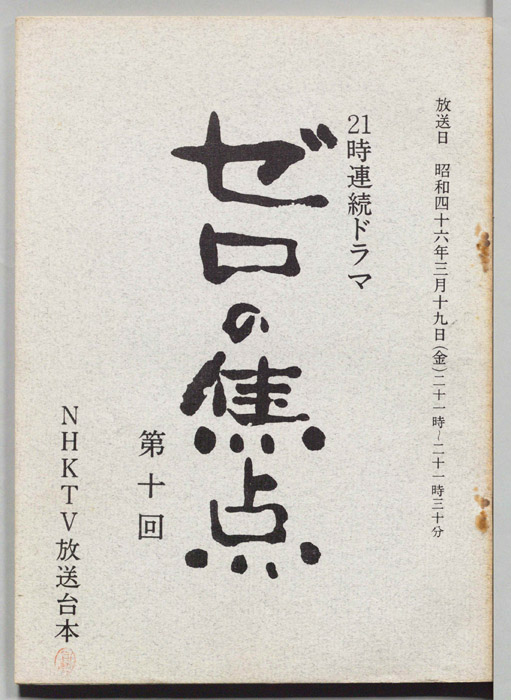 放送日　昭和四十六年三月十九日(金)二十一時~二十一時三十分
21時連続ドラマ
ゼロの焦点
第十回
NHKTV放送台本